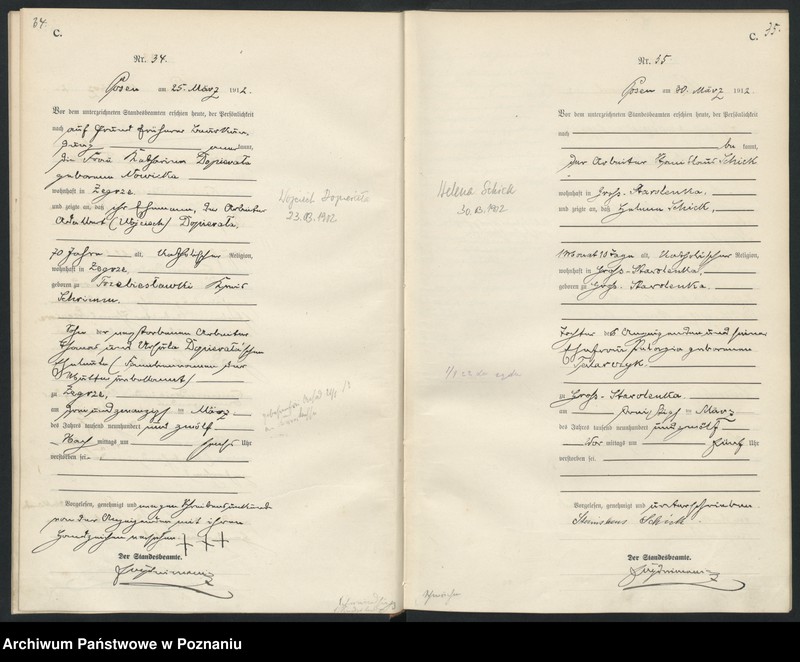 34.
C.
Nr. 34.
Posen am 25. März 1912.
Vor dem unterzeichneten Standesbeamten erschien heute, der Persönlichkeit
nach auf Grund früherer
kannt,
die Frau Katharina Dopierała
geborene Nowicka
wohnhaft in Żegrze,
und zeigte an, daß ihr Ehemann, der Arbeiter
Adalbert (Wojciech) Dopierała,
70 Jahre alt, katholischer Religion,
wohnhaft in Żegrze,
geboren zu Kreis
Schrimm,
Sohn der verstorbenen Arbeiter
Thomas und Dopierała'schen
Eheleute (Familiennamen der
Mutter unbekannt)
zu Żegrze,
am März
des Jahres tausend neunhundert und zwölf
Nach mittags um sechs Uhr
verstorben sei.
Vorgelesen, genehmigt und wegen Schreibensunkunde
von der Anzeigenden mit ihrem
Handzeichen versehen.
+ ++
Der Standesbeamte.
Wojciech Dopierała
23.III.1912.
35.
C.
Nr. 35
Posen am 30. März 1912.
Vor dem unterzeichneten Standesbeamten erschien heute, der Persönlichkeit
nach
be kannt,
der Arbeiter Stanislaus Schick
wohnhaft in Groß-Starolenka,
und zeigte an, daß Helena Schick,
1 Monat 10 Tage alt, katholischer Religion,
wohnhaft in Groß-Starolenka,
geboren zu Groß-Starolenka.
Tochter des Anzeigenden und seiner
Ehefrau Pelagia geborenen
zu Groß-Starolenka.
am dreißigsten März
des Jahres tausend neunhundert und zwölf
Vor mittags um fünf Uhr
verstorben sei.
Vorgelesen, genehmigt und unterschrieben
Stanislaus Schick.
Der Standesbeamte.
Helena Schick
30.III.1912
Archiwum Państwowe w Poznaniu